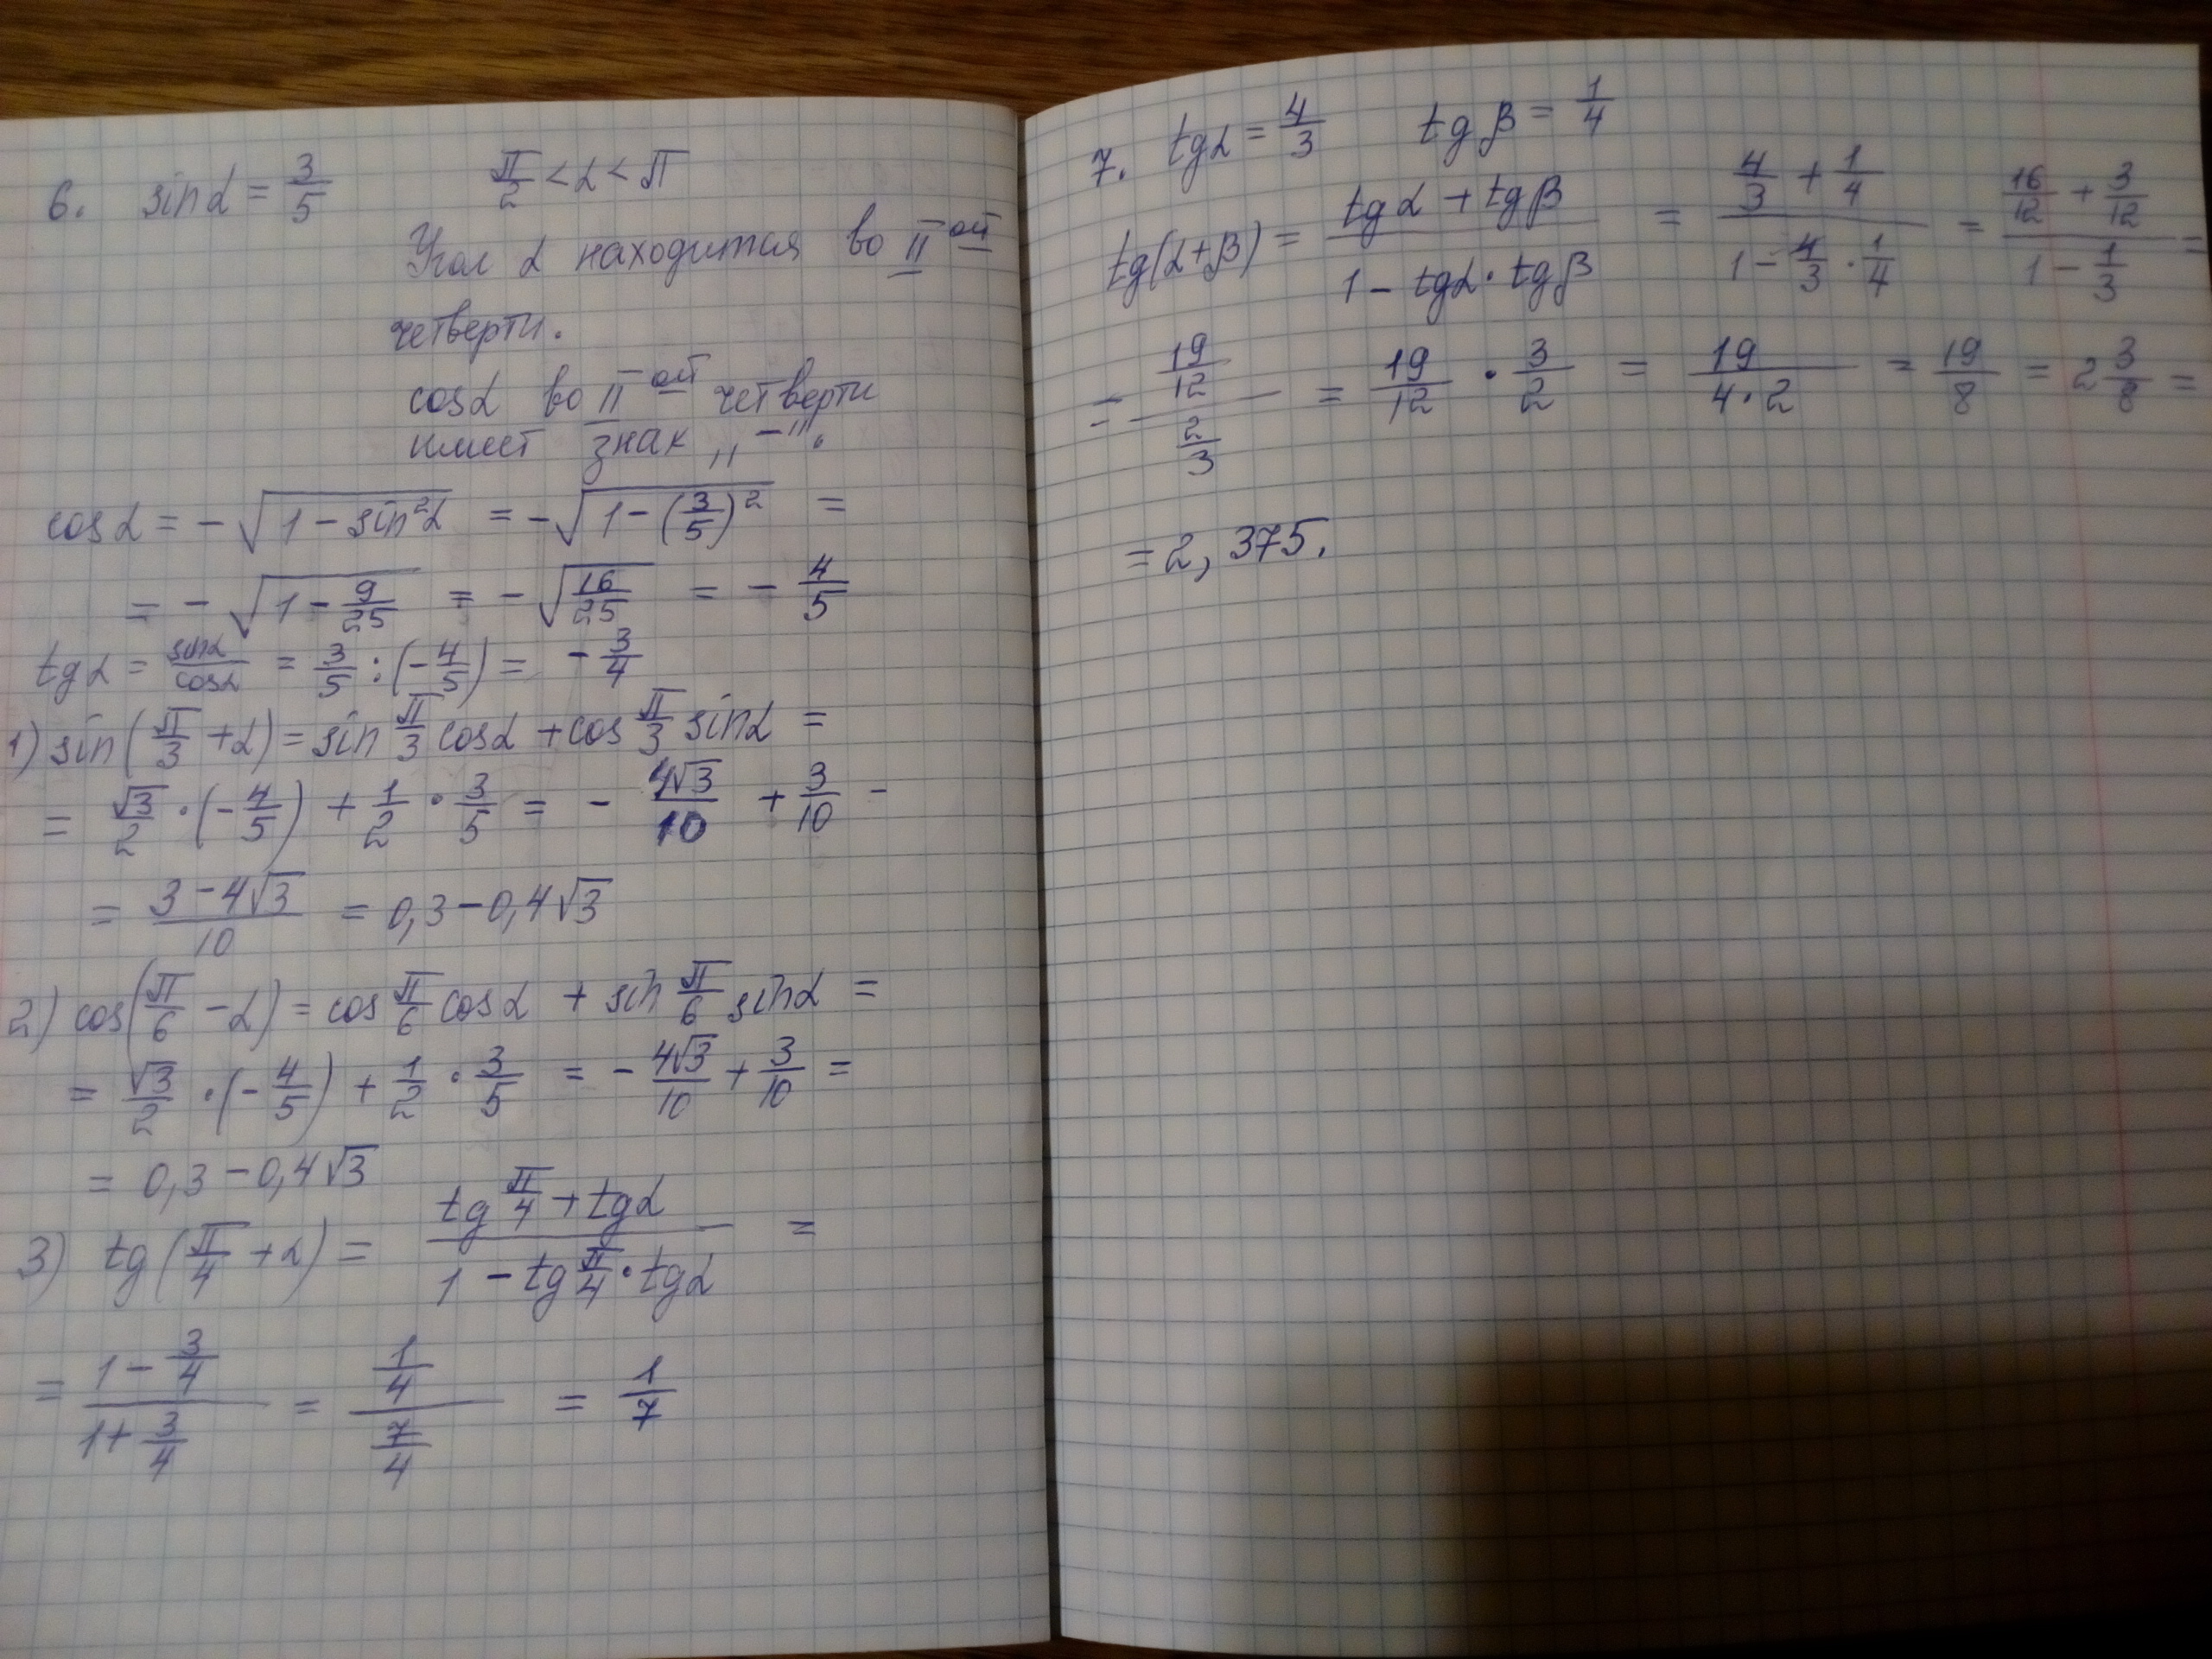 6. sinα = 3/5     π/2 < α < π
Угол α находится во II ой
четверти.
cosα во II ой четверти
имеет знак „−".
cosα = −√(1 − sin²α) = −√(1 − (3/5)²) =
= −√(1 − 9/25) = −√(16/25) = −4/5
tgα = sinα/cosα = 3/5 : (−4/5) = −3/4
1) sin(π/3 + α) = sin π/3 cosα + cos π/3 sinα =
= √3/2 · (−4/5) + 1/2 · 3/5 = − 4√3/10 + 3/10 =
= (3 − 4√3)/10 = 0,3 − 0,4√3
2) cos(π/6 − α) = cos π/6 cosα + sin π/6 sinα =
= √3/2 · (−4/5) + 1/2 · 3/5 = − 4√3/10 + 3/10 =
= 0,3 − 0,4√3
3) tg(π/4 + α) = (tg π/4 + tgα)/(1 − tg π/4 · tgα) =
= (1 − 3/4)/(1 + 3/4) = (1/4)/(7/4) = 1/7
7. tgα = 4/3     tgβ = 1/4
tg(α+β) = (tgα + tgβ)/(1 − tgα · tgβ) = (4/3 + 1/4)/(1 − 4/3 · 1/4) = (16/12 + 3/12)/(1 − 1/3) =
= (19/12)/(2/3) = 19/12 · 3/2 = 19/(4·2) = 19/8 = 2 3/8 =
= 2,375.